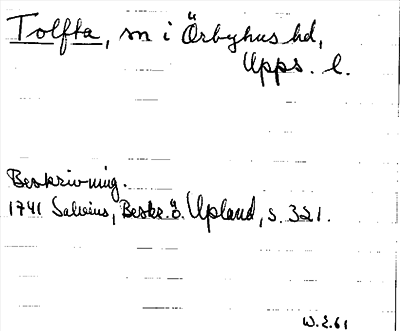 Tolfta, sn i Örbyhus hd,
Upps. l.
Beskrivning.
1741 Salvius, Beskr. ö. Upland, s. 321.
W.E.61